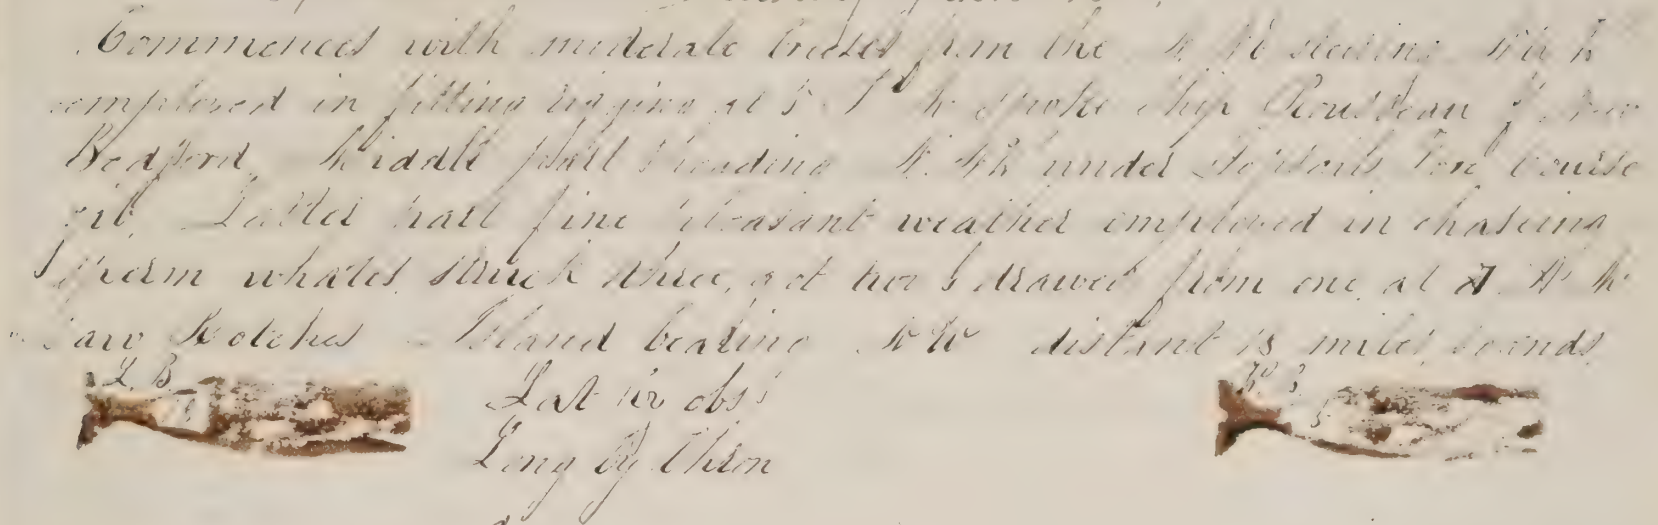 Commences with moderate breezes from the N E steering
employed in fitting rigging at 5 P M spoke ship Rousseau of New
Bedford Middle part heading N under Topsails Fore course
jib. Latter part fine pleasant weather employed in chaseing
Sperm whales struck three, got two & drawed from one, at 7 A M
saw Rotches Island bearing distant 15 miles
L B
Lat by obs
Long by Chron